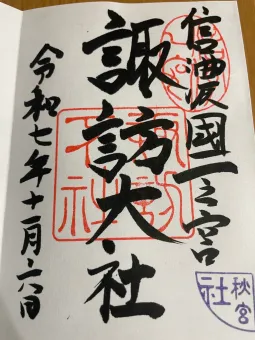 信濃國一之宮
諏訪大社
令和七年十一月二八日
秋宮
社